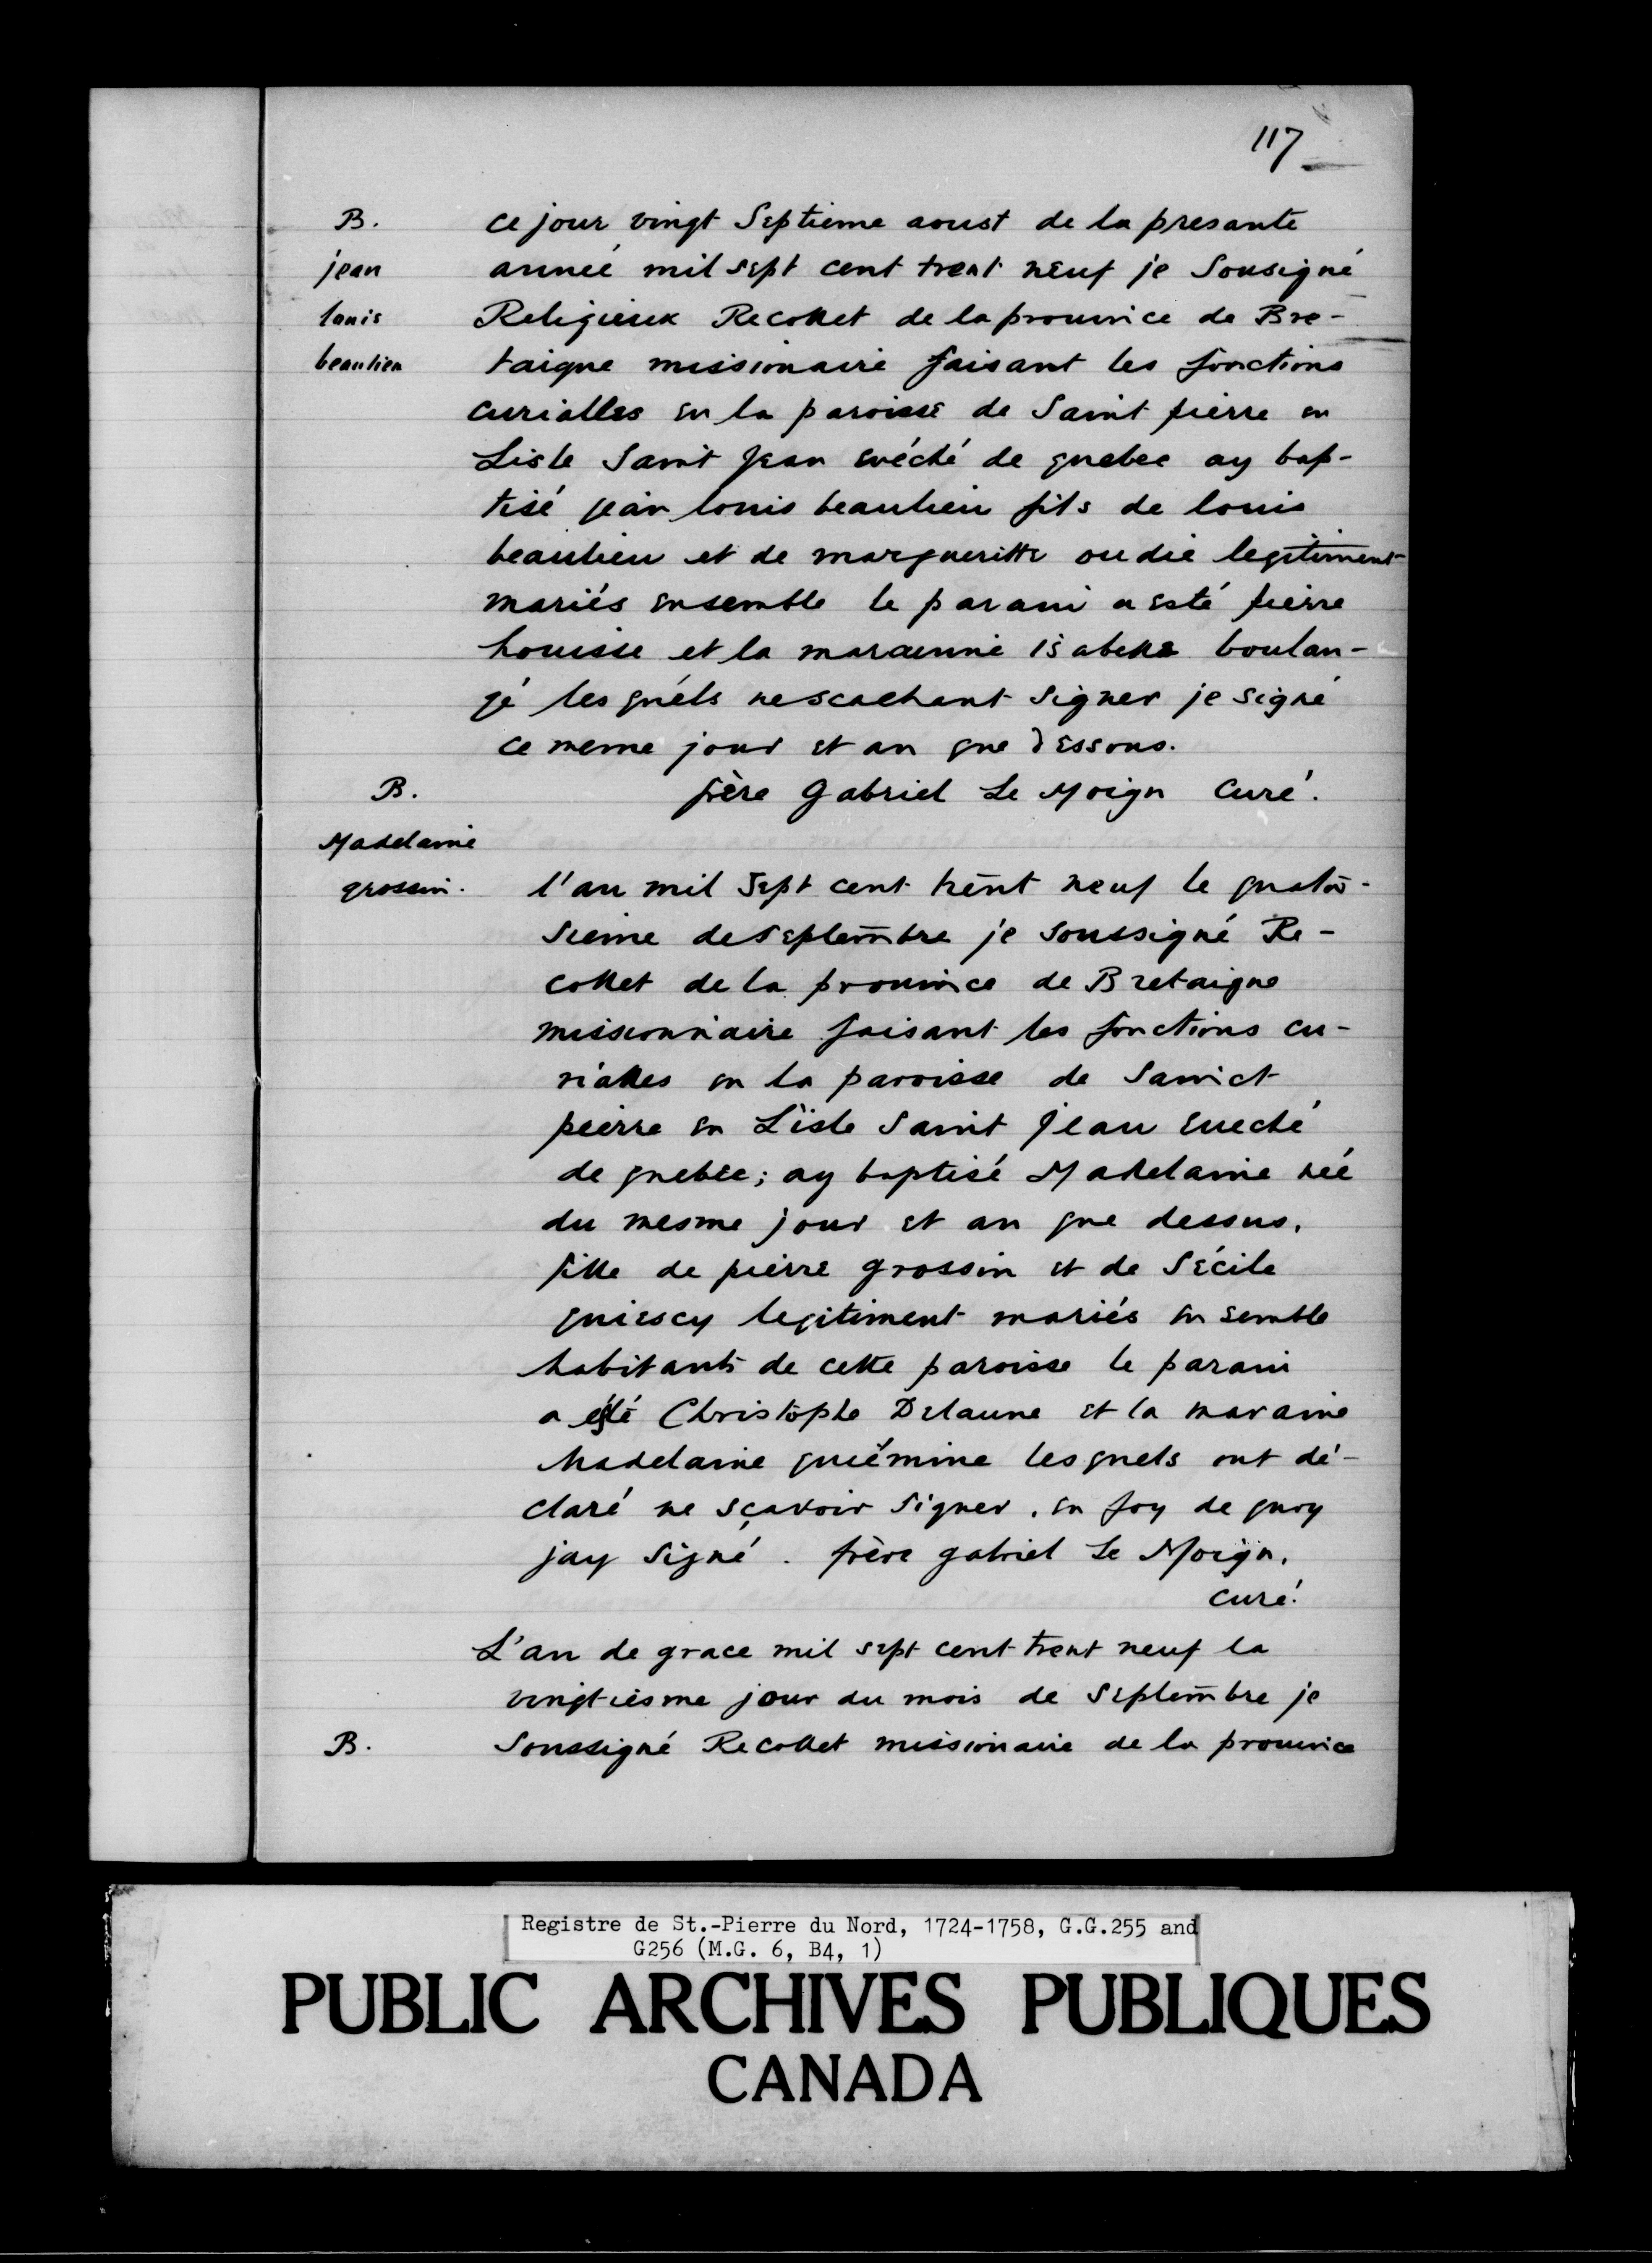 117
B. ce jour vingt Septieme aoust de la presante
jean anneé mil sept cent trent neuf je Sousigné
louis Religieux Recollet de la prouince de Bre-
beaulieu taigne missionaire faisant les fonctions
curialles en la paroisse de Saint pierre en
Lisle Saint Jean evéché de quebec ay bap-
tisé jean louis beaulieu fils de louis
beaulieu et de margueritte oudie legitiment
mariés ensemble le parain a esté pierre
houisse et la maraenne isabelle boulan-
gé les quéls nescachant signer je signé
ce meme jour et an que dessous.
B. frère Gabriel Le Moign Curé.
Madelaine
grossin. l'an mil sept cent trent neuf le quator-
sieme de septembre je soussigné Re-
collet de la prouince de Bretaigne
missionnaire faisant les fonctions cu-
rialles en la paroisse de Sainct
pierre en L'isle Saint Jean eueché
de quebec; ay baptisé Madelaine née
du mesme jour et an que dessus,
fille de pierre grossin et de Sécile
quiescy legitiment mariés en semble
habitants de cette paroisse le parain
a esté Christophe Delaune et la maraine
Madelaine quiémine lesquels ont dé-
claré ne sçavoir signer, en foy de quoy
jay signé. frère gabriel Le Moign,
curé.
L'an de grace mil sept cent trent neuf la
vingtiesme jour du mois de septembre je
B. Soussigné Recollet missionaire de la prouince
Registre de St.-Pierre du Nord, 1724-1758, G.G.255 and
G256 (M.G. 6, B4, 1)
PUBLIC ARCHIVES PUBLIQUES
CANADA